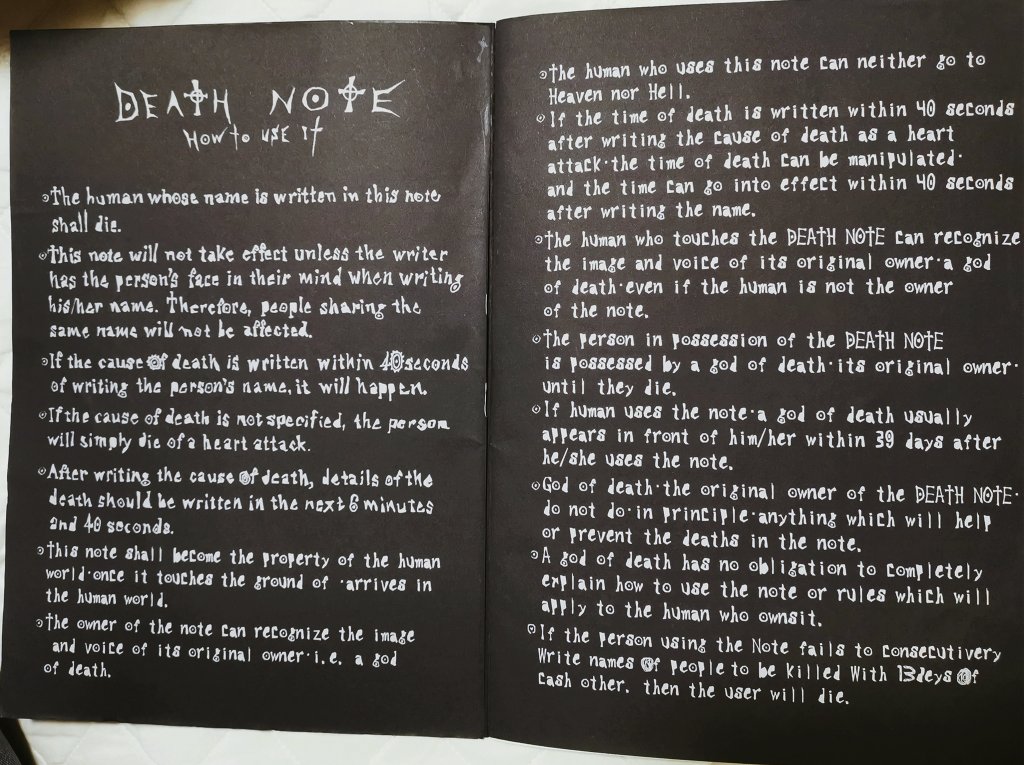 DEATH NOTE
HOW to USE IT
The human whose name is written in this note
shall die.
This note will not take effect unless the writer
has the person's face in their mind when writing
his/her name. Therefore, people sharing the
same name will not be affected.
If the cause of death is written within 40seconds
of writing the person's name, it will happen.
If the cause of death is not specified, the person
will simply die of a heart attack.
After writing the cause of death, details of the
death should be written in the next 6 minutes
and 40 seconds.
This note shall become the property of the human
world·once it touches the ground of ·arrives in
the human world.
The owner of the note can recognize the image
and voice of its original owner·i.e. a god
of death.
The human who uses this note can neither go to
Heaven nor Hell.
If the time of death is written within 40 seconds
after writing the cause of death as a heart
attack·the time of death can be manipulated·
and the time can go into effect within 40 seconds
after writing the name.
The human who touches the DEATH NOTE can recognize
the image and voice of its original owner·a god
of death·even if the human is not the owner
of the note.
The person in possession of the DEATH NOTE
is possessed by a god of death·its original owner·
until they die.
If human uses the note·a god of death usually
appears in front of him/her within 39 days after
he/she uses the note.
God of death·the original owner of the DEATH NOTE·
do not do·in principle·anything which will help
or prevent the deaths in the note.
A god of death has no obligation to completely
explain how to use the note or rules which will
apply to the human who ownsit.
If the person using the Note fails to consecutivery
Write names of people to be killed With 13deys of
cash other. then the user will die.